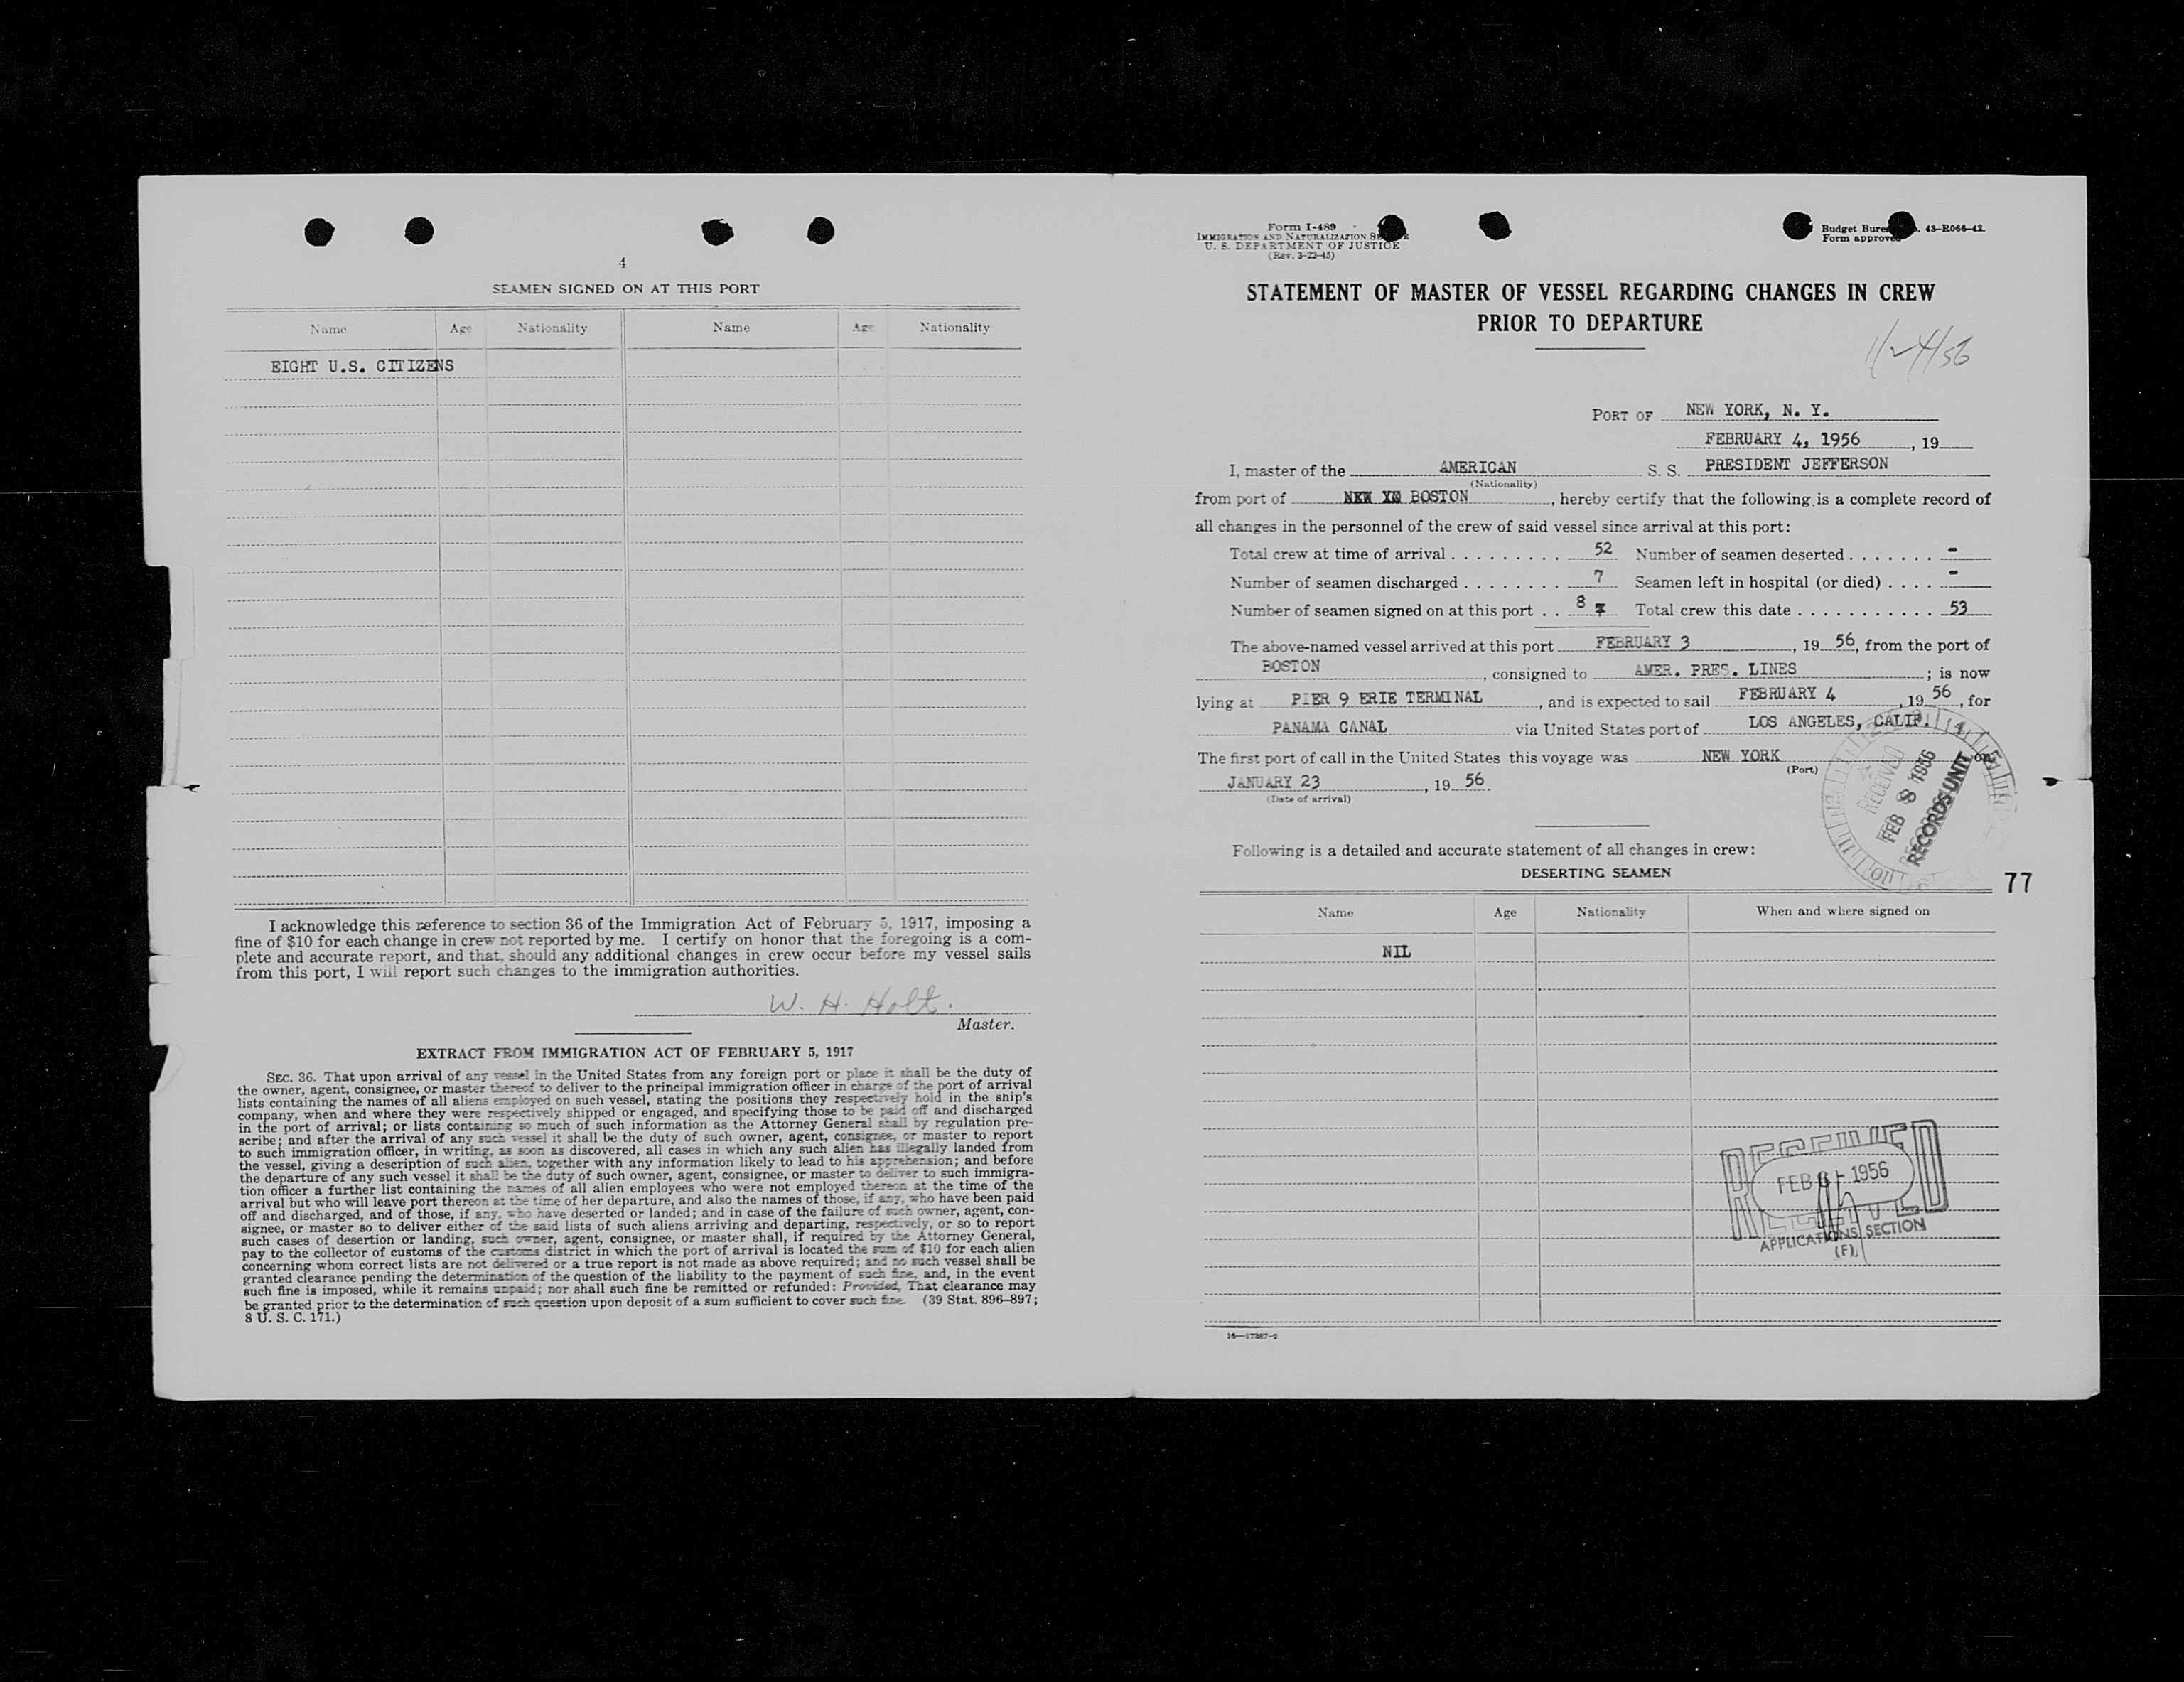 4
SEAMEN SIGNED ON AT THIS PORT
Name Age Nationality Name Age Nationality
EIGHT U.S. CITIZENS
I acknowledge this reference to section 36 of the Immigration Act of February 5, 1917, imposing a
fine of $10 for each change in crew not reported by me. I certify on honor that the foregoing is a com-
plete and accurate report, and that, should any additional changes in crew occur before my vessel sails
from this port, I will report such changes to the immigration authorities.
W. H. Holt.
Master.
EXTRACT FROM IMMIGRATION ACT OF FEBRUARY 5, 1917
SEC. 36. That upon arrival of any vessel in the United States from any foreign port or place it shall be the duty of
the owner, agent, consignee, or master thereof to deliver to the principal immigration officer in charge of the port of arrival
lists containing the names of all aliens employed on such vessel, stating the positions they respectively hold in the ship's
company, when and where they were respectively shipped or engaged, and specifying those to be paid off and discharged
in the port of arrival; or lists containing so much of such information as the Attorney General shall by regulation pre-
scribe; and after the arrival of any such vessel it shall be the duty of such owner, agent, consignee, or master to report
to such immigration officer, in writing, as soon as discovered, all cases in which any such alien has illegally landed from
the vessel, giving a description of such alien, together with any information likely to lead to his apprehension; and before
the departure of any such vessel it shall be the duty of such owner, agent, consignee, or master to deliver to such immigra-
tion officer a further list containing the names of all alien employees who were not employed thereon at the time of the
arrival but who will leave port thereon at the time of her departure, and also the names of those, if any, who have been paid
off and discharged, and of those, if any, who have deserted or landed; and in case of the failure of such owner, agent, con-
signee, or master so to deliver either of the said lists of such aliens arriving and departing, respectively, or so to report
such cases of desertion or landing, such owner, agent, consignee, or master shall, if required by the Attorney General,
pay to the collector of customs of the customs district in which the port of arrival is located the sum of $10 for each alien
concerning whom correct lists are not delivered or a true report is not made as above required; and no such vessel shall be
granted clearance pending the determination of the question of the liability to the payment of such fine, and, in the event
such fine is imposed, while it remains unpaid; nor shall such fine be remitted or refunded: Provided, That clearance may
be granted prior to the determination of such question upon deposit of a sum sufficient to cover such fine. (39 Stat. 896–897;
8 U. S. C. 171.)
Form I-489
IMMIGRATION AND NATURALIZATION
U. S. DEPARTMENT OF JUSTICE
(Rev. 3-22-45)
Budget Bure . 43-R066-42.
Form approved
STATEMENT OF MASTER OF VESSEL REGARDING CHANGES IN CREW
PRIOR TO DEPARTURE
PORT OF NEW YORK, N. Y.
FEBRUARY 4, 1956, 19
I, master of the AMERICAN S. S. PRESIDENT JEFFERSON
(Nationality)
from port of BOSTON, hereby certify that the following is a complete record of
all changes in the personnel of the crew of said vessel since arrival at this port:
Total crew at time of arrival . . . . . . . . . 52 Number of seamen deserted . . . . . . . -
Number of seamen discharged . . . . . . . . 7 Seamen left in hospital (or died) . . . . -
Number of seamen signed on at this port . . 8 Total crew this date . . . . . . . . . . . 53
The above-named vessel arrived at this port FEBRUARY 3, 19 56, from the port of
BOSTON, consigned to AMER. PRES. LINES; is now
lying at PIER 9 ERIE TERMINAL, and is expected to sail FEBRUARY 4, 19 56, for
PANAMA CANAL via United States port of LOS ANGELES, CALIF.
The first port of call in the United States this voyage was NEW YORK on
(Port)
JANUARY 23, 19 56.
(Date of arrival)
RECEIVED
FEB 8 1956
RECORDS UNIT
Following is a detailed and accurate statement of all changes in crew:
DESERTING SEAMEN
77
Name Age Nationality When and where signed on
NIL
RECEIVED
FEB 6 - 1956
APPLICATIONS SECTION
(F)
16—17387-2